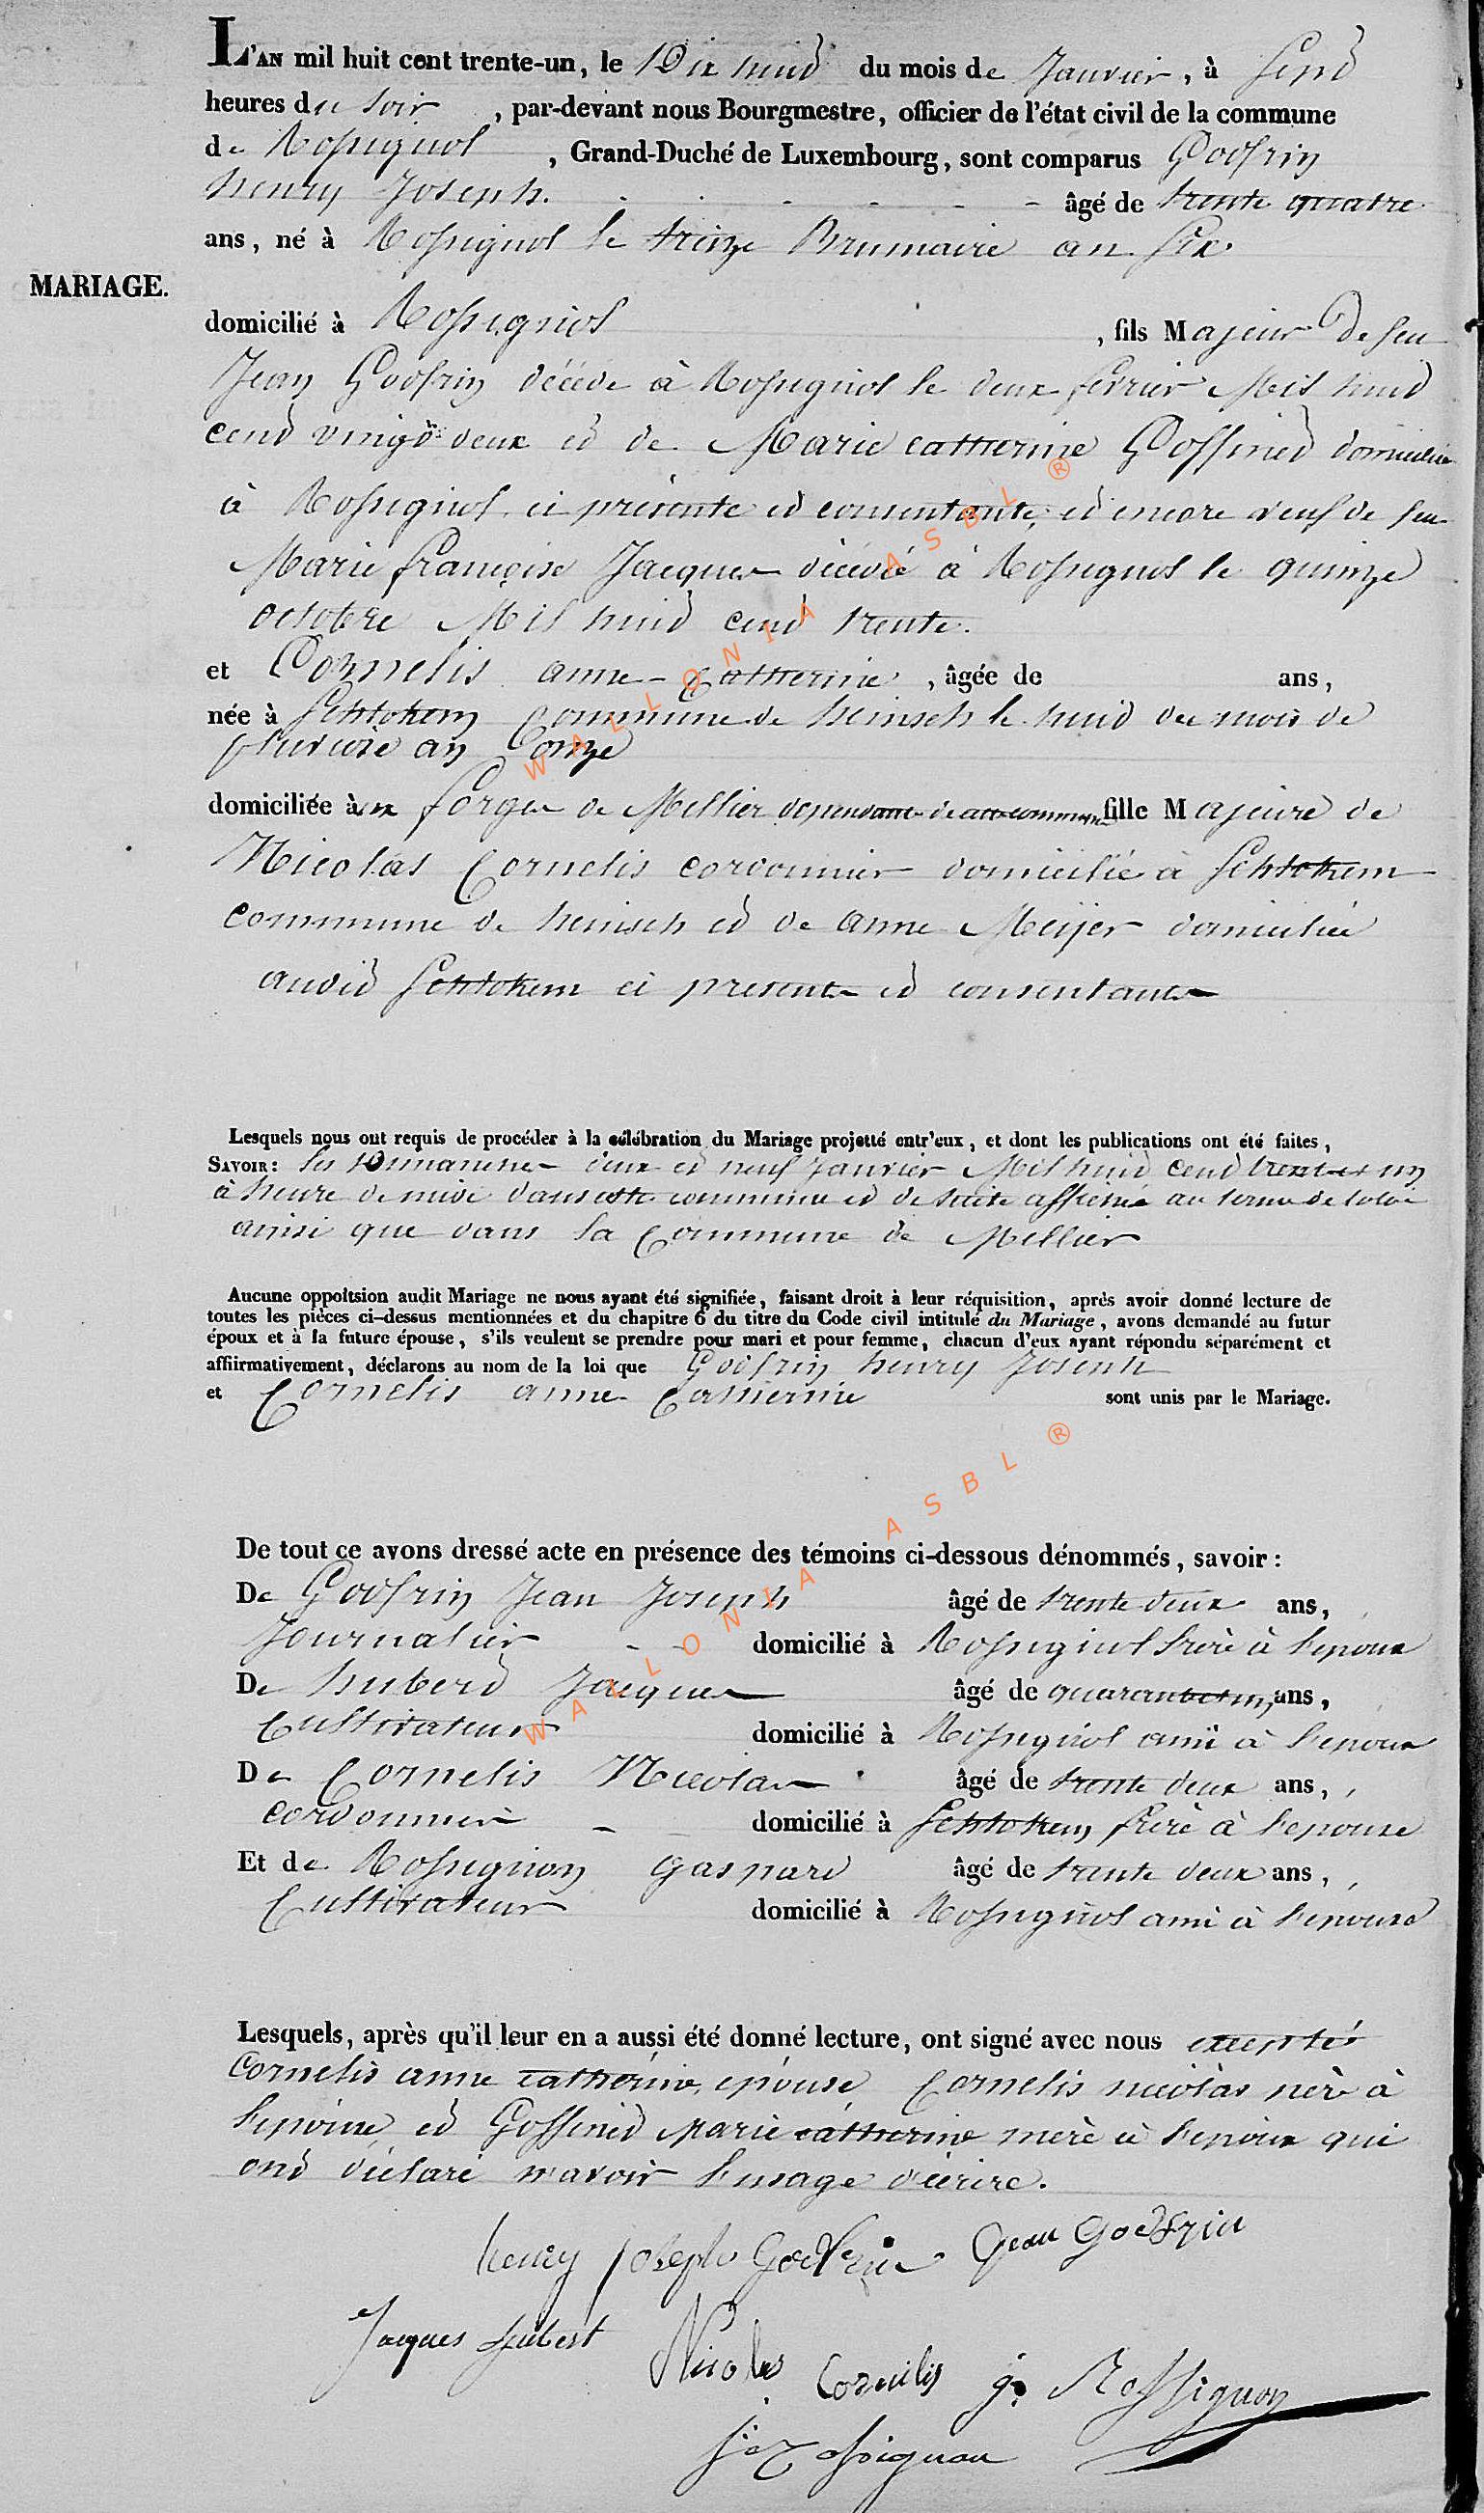 L'AN mil huit cent trente-un, le Dix huid du mois de Janvier, à sepd
heures du soir, par-devant nous Bourgmestre, officier de l'état civil de la commune
de Rossignol, Grand-Duché de Luxembourg, sont comparus Godfrin
henry Joseph. âgé de trente quatre
ans, né à Rossignol le treize Brumaire an six
MARIAGE.
domicilié à Rossignol, fils Majeur de feu
Jean Godfrin décéde à Rossignol le deux février Mil huid
cend vingd deux ed de Marie catherine Goffined domiciliée
à Rossignol ci présente ed consentante, ed encore veuf de feu
Marie françoise Jacques décédé à Rossignol le quinze
octobre Mil huid cend trente.
et Cornelis anne-Catherine, âgée de ans,
née à Schtokem Commune de heinsch le huid du mois de
pluviose an onze
domiciliée à ux forges de Mellier dependante de commune fille Majeure de
Nicolas Cornelis cordonnier domicilié à Schtokem
commune de heinsch ed de anne Meijer domiciliée
audid Schtokem ci present ed consentants
Lesquels nous ont requis de procéder à la célébration du Mariage projetté entr'eux, et dont les publications ont été faites,
SAVOIR: les Dimanches deux ed neuf Janvier Mil huid cend trente un
à heure de midi dans cette commune ed de suite affiché au terme de la loi
ainsi que dans la Commune de Mellier
Aucune oppoitsion audit Mariage ne nous ayant été signifiée, faisant droit à leur réquisition, après avoir donné lecture de
toutes les pièces ci-dessus mentionnées et du chapitre 6 du titre du Code civil intitulé du Mariage, avons demandé au futur
époux et à la future épouse, s'ils veulent se prendre pour mari et pour femme, chacun d'eux ayant répondu séparément et
affiirmativement, déclarons au nom de la loi que Godfrin henry Joseph
et Cornelis anne Catherine sont unis par le Mariage.
De tout ce avons dressé acte en présence des témoins ci-dessous dénommés, savoir:
De Godfrin Jean Joseph âgé de trente deux ans,
Journalier domicilié à Rossignol frère à l'epoux
De huberd Jacques âgé de quarante un ans,
Cultivateur domicilié à Rossignol ami à l'epoux
De Cornelis Nicolas âgé de trente deux ans,
cordonnier domicilié à Schtokem frère à l'epouse
Et de Rossignon gaspard âgé de trente deux ans,
Cultivateur domicilié à Rossignol ami à l'epouse
Lesquels, après qu'il leur en a aussi été donné lecture, ont signé avec nous exceptés
Cornelis anne catherine, epouse Cornelis nicolas père à
l'epouse ed Goffined Marie catherine mère à l'epoux qui
ond déclaré n'avoir l'usage d'écrire.
henry joseph Godfrin Jean Godfrin
Jacques hubert Nicolas Cornelis g. Rossignon
Rossignon
WALLONIA ASBL ®
WALLONIA ASBL ®